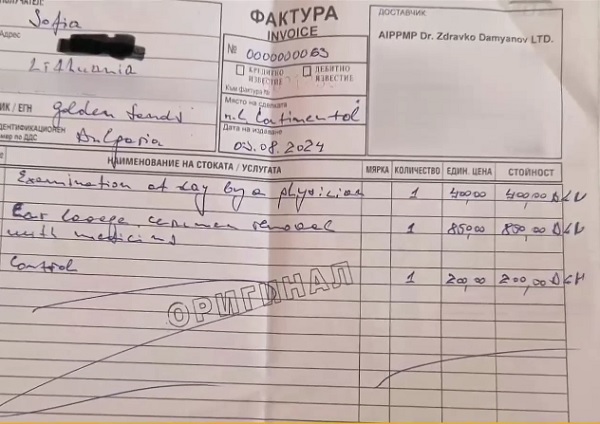 ПОЛУЧАТЕЛ:
Sofia
Адрес
Lithuania
ИК / ЕГН
Golden Sands
ДЕНТИФИКАЦИОНЕН
мер по ДДС
Bulgaria
ФАКТУРА
INVOICE
№ 0000000063
КРЕДИТНО ИЗВЕСТИЕ
ДЕБИТНО ИЗВЕСТИЕ
Към фактура №
Място на сделката
Continental
Дата на издаване
03.08.2024
ДОСТАВЧИК
AIPPMP Dr. Zdravko Damyanov LTD.
НАИМЕНОВАНИЕ НА СТОКАТА / УСЛУГАТА МЯРКА КОЛИЧЕСТВО ЕДИН. ЦЕНА СТОЙНОСТ
Examination at day by a physician 1 400,00 400,00
Ear lavage cerumen removal 1 850,00 850,00
with medicins
Control 1 200,00 200,00
ОРИГИНАЛ